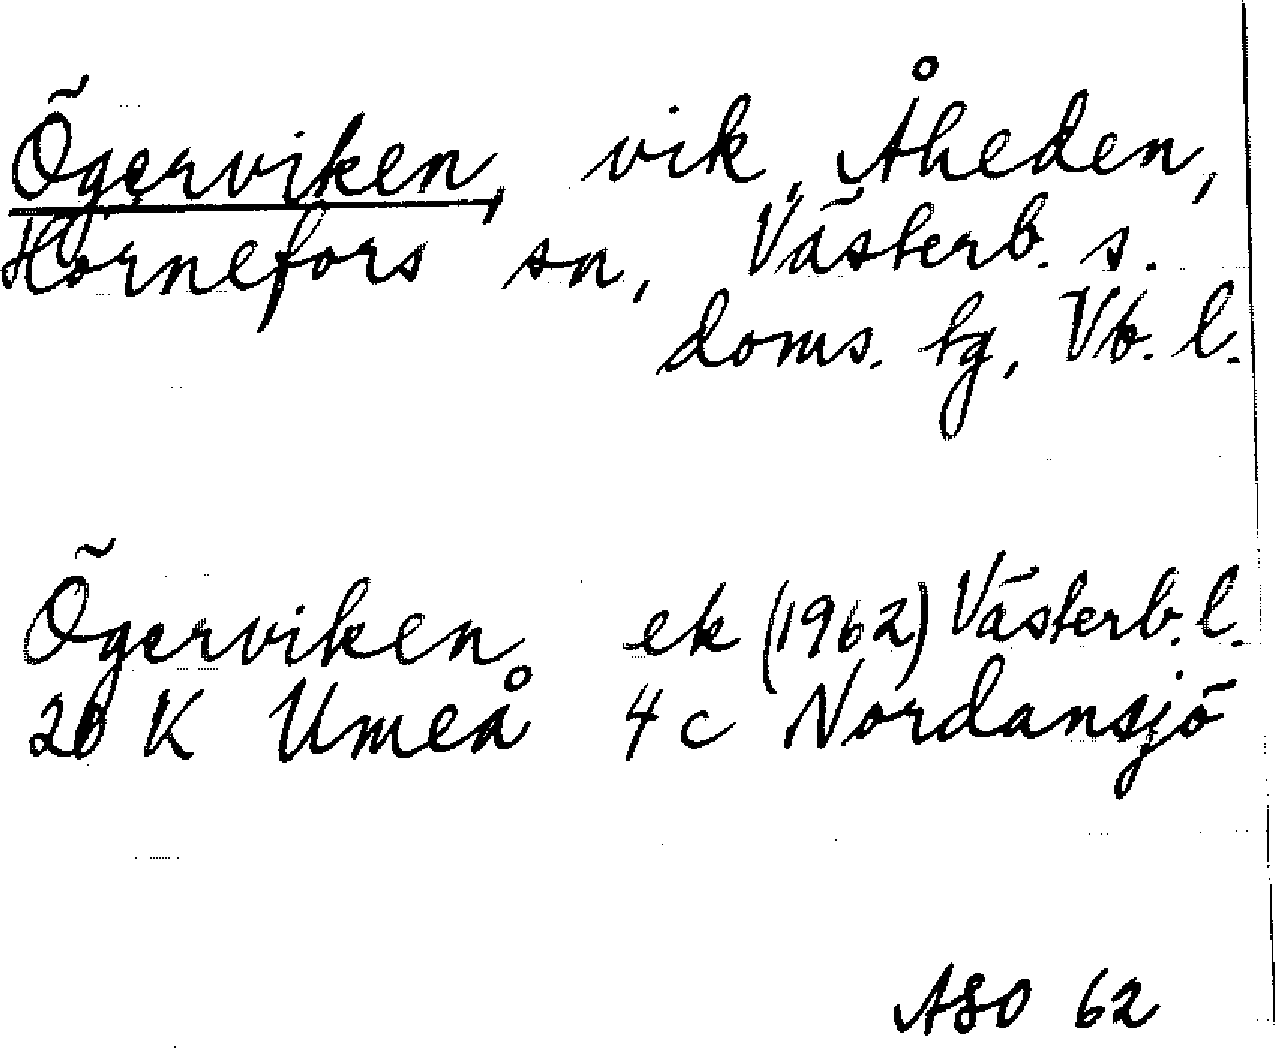 Ögerviken, vik, Åheden,
Hörnefors sn, Västerb. s.
doms. tg, Vb. l.
Ögerviken ek (1962) Västerb. l.
20 K Umeå 4 c Nordansjö
ASO 62